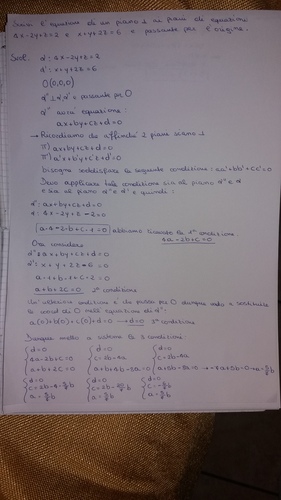 Scrivi l'equazione di un piano ⊥ ai piani di equazioni
4x-2y+z=2 e x+y+2z=6 e passante per l'origine.
Sol. α: 4x-2y+z=2
α': x+y+2z=6
O(0,0,0)
α'' ⊥ α, α' e passante per O
α'' avrà equazione:
ax+by+cz+d=0
→ Ricordiamo che affinché 2 piani siano ⊥
π) ax+by+cz+d=0
π') a'x+b'y+c'z+d'=0
bisogna soddisfare la seguente condizione: aa'+bb'+cc'=0
Devo applicare tale condizione sia al piano α'' e α
e sia al piano α'' e α' e quindi:
α'': ax+by+cz+d=0
α: 4x-2y+z-2=0
a·4-2·b+c·1=0 abbiamo la 1ª condizione
4a-2b+c=0
Ora
α'': ax+by+cz+d=0
α': x+y+2z-6=0
a·1+b·1+c·2=0
a+b+2c=0 2ª condizione
Un'ulteriore condizione è che passa per O dunque vado a sostituire
le coord di O nell'equazione di α'':
a(0)+b(0)+c(0)+d=0 → d=0 3ª condizione
Dunque metto a sistema le 3 condizioni:
d=0 d=0 d=0
4a-2b+c=0 c=2b-4a c=2b-4a
a+b+2c=0 a+b+4b-8a=0 a+5b-8a=0 → -7a+5b=0
d=0 d=0 d=0